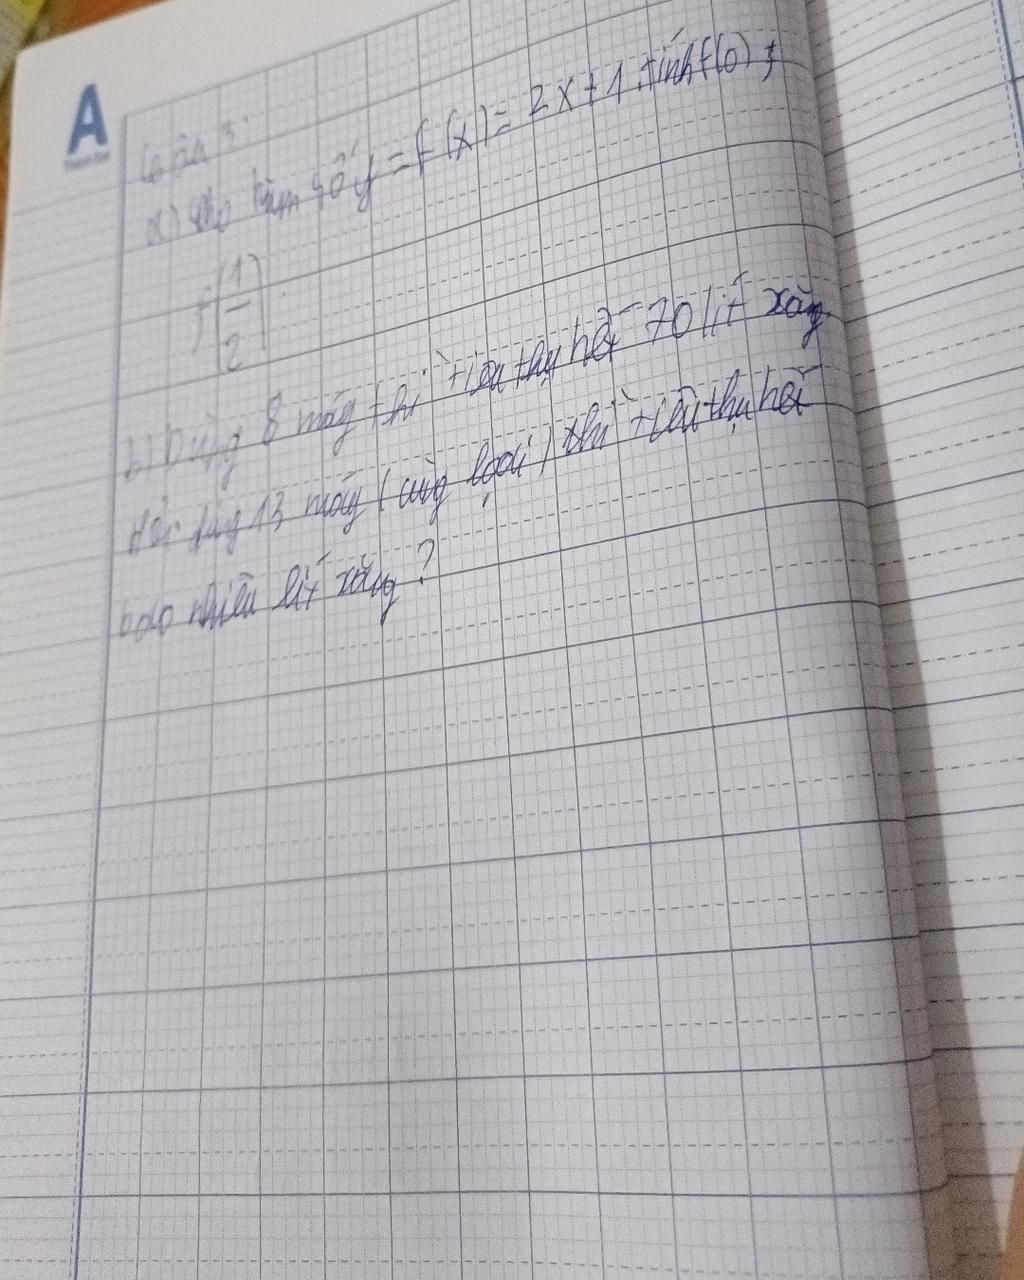 A
Câu 3:
a) Cho hàm số y = f(x) = 2x + 1. tính f(0);
f(1/2)
b) Dùng 8 máy thì tiêu thụ hết 70 lít xăng
Hỏi dùng 13 máy (cùng loại) thì tiêu thụ hết
bao nhiêu lít xăng?